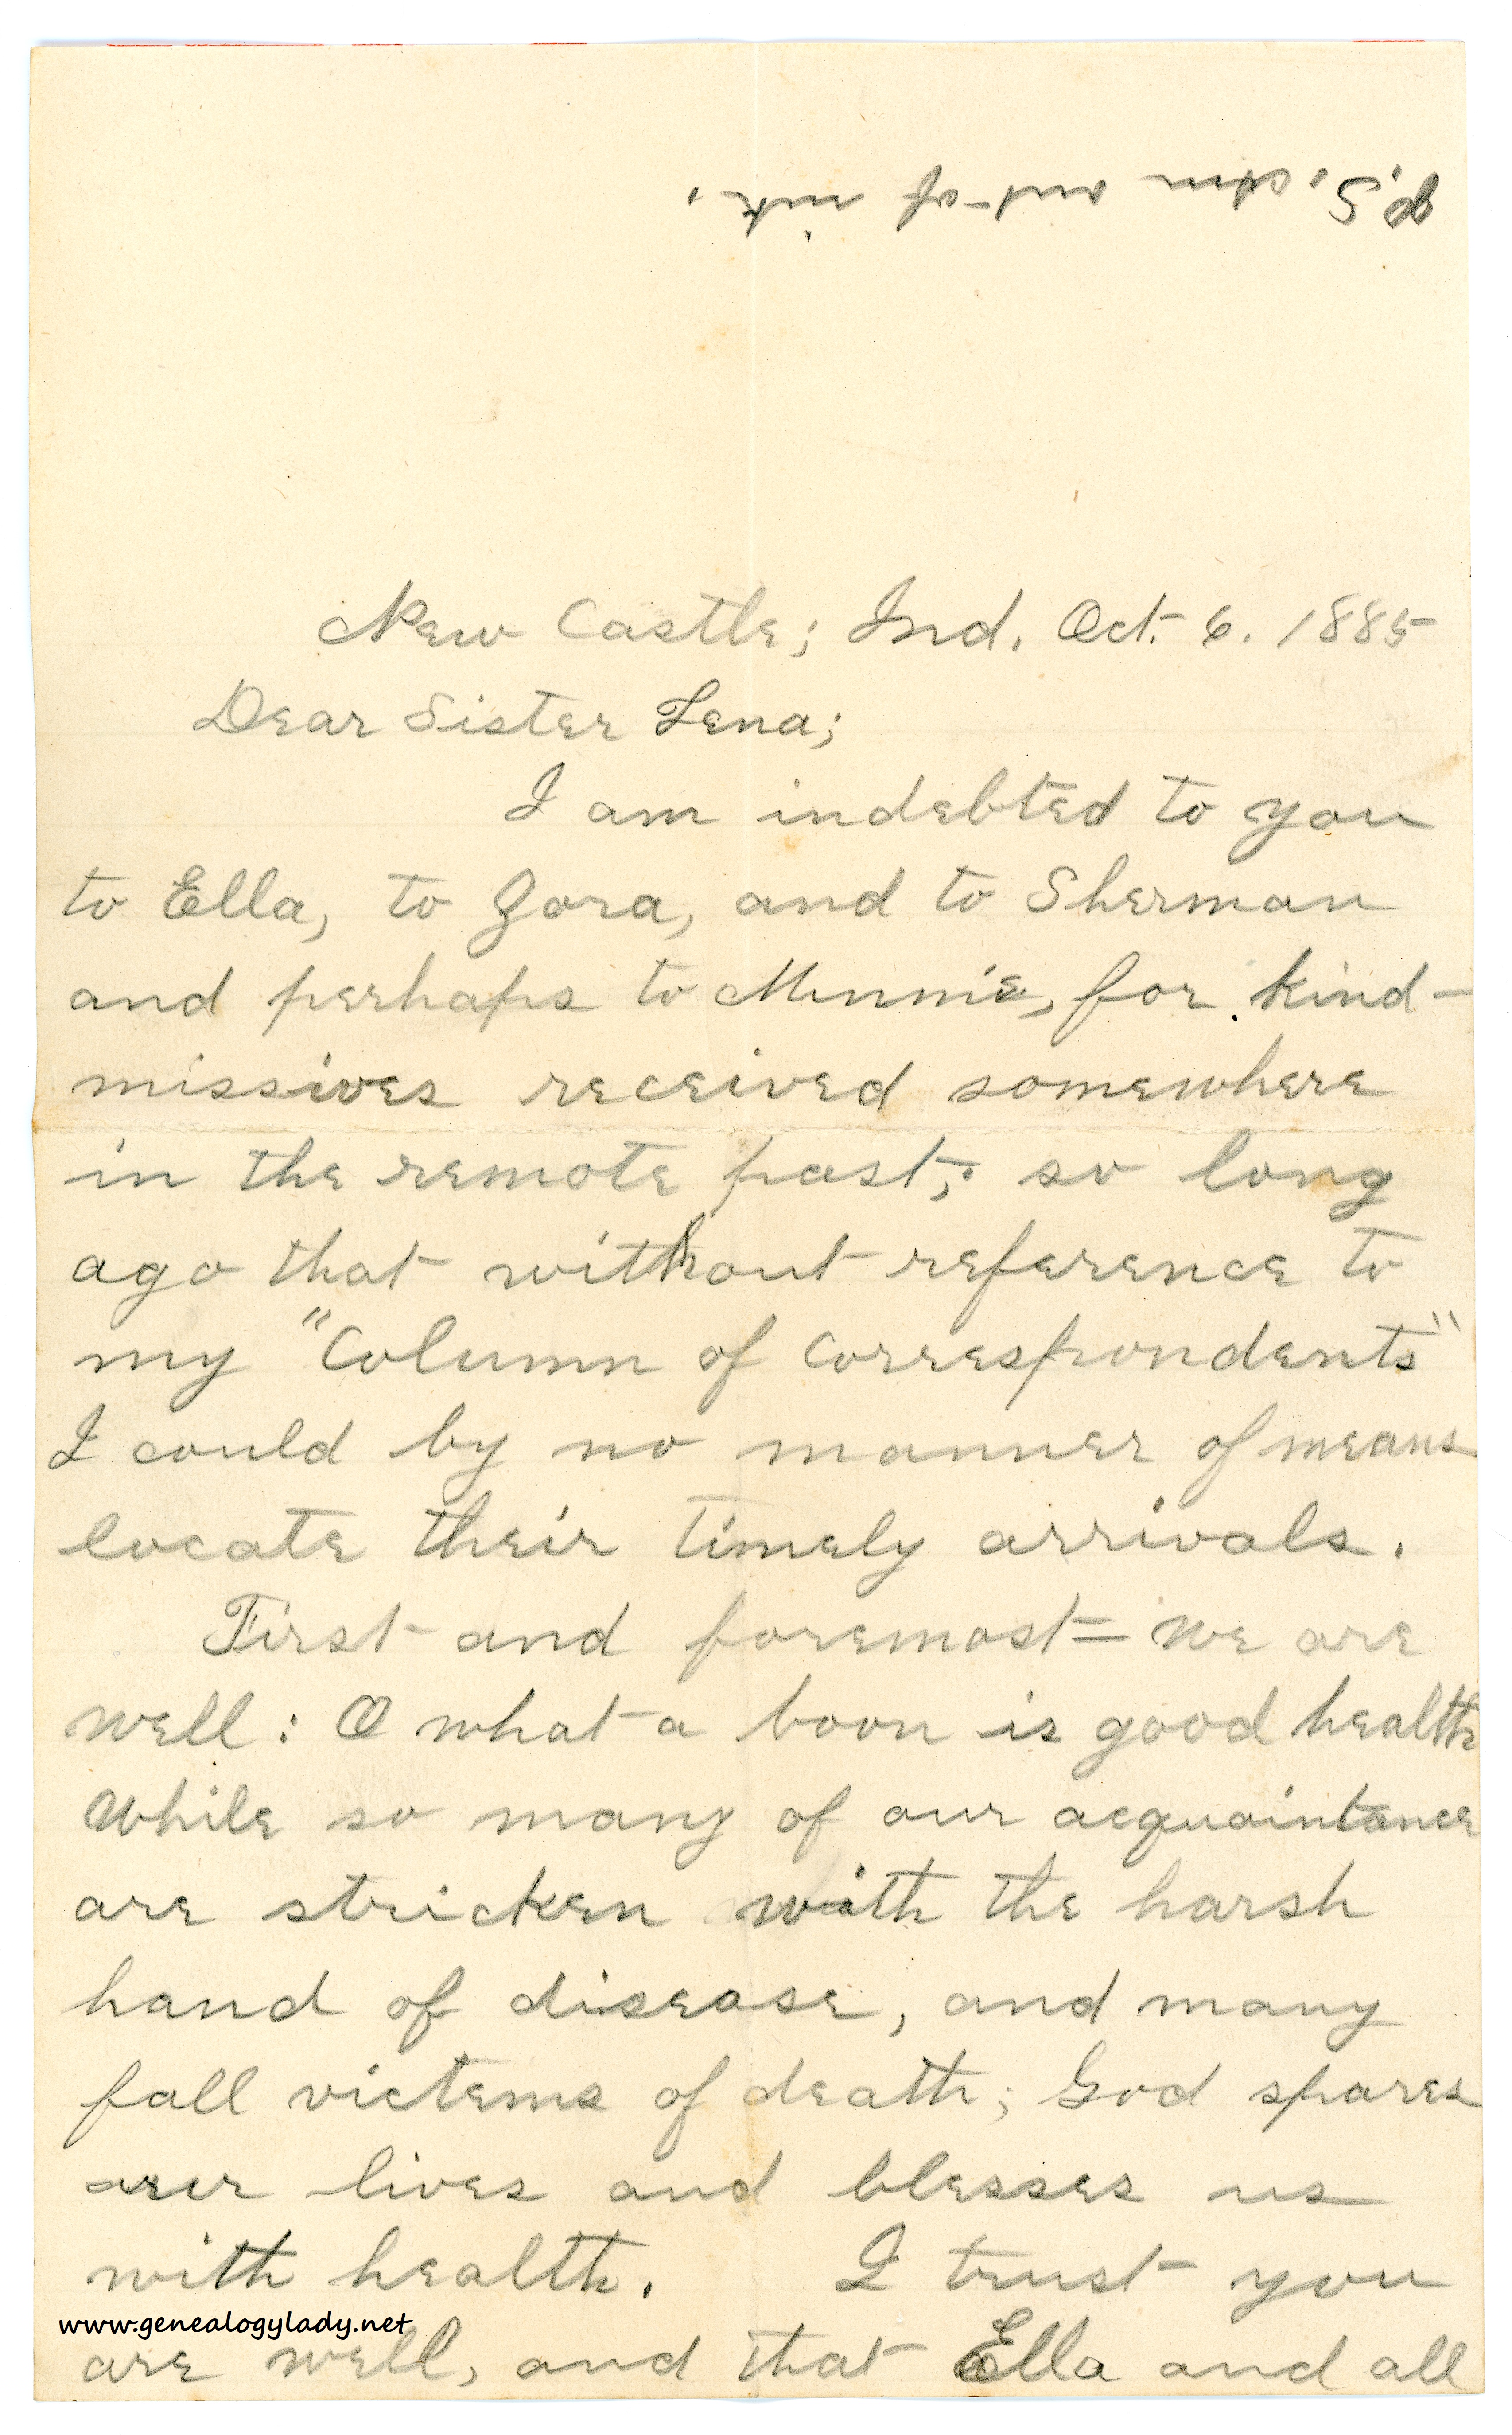 P.S. Am out of ink.
New Castle; Ind. Oct. 6. 1885
Dear Sister Lena;
I am indebted to you
to Ella, to Zora, and to Sherman
and perhaps to Minnie, for kind-
missives received somewhere
in the remote past; so long
ago that without reference to
my "Column of Correspondents"
I could by no manner of means
locate their timely arrivals.
First and foremost= We are
well: O what a boon is good health
While so many of our acquaintance
are stricken with the harsh
hand of disease, and many
fall victems of death; God spares
our lives and blesses us
with health. I trust you
www.genealogylady.net
are well, and that Ella and all